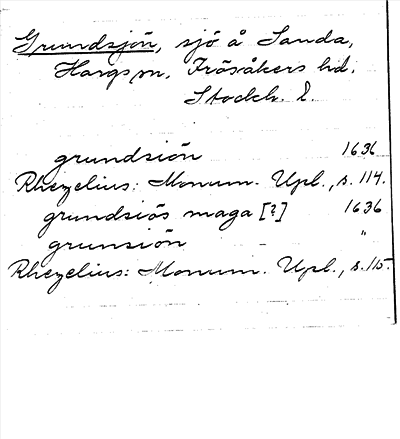 Grundsjön, sjö å Sanda,
Hargs sn, Frösåkers hd.
Stockh. l.
grundsiön 1636
Rhezelius: Monum. Upl., s. 114.
grundsiös maga [?] 1636
grunsiön "
Rhezelius: Monum. Upl., s. 115.